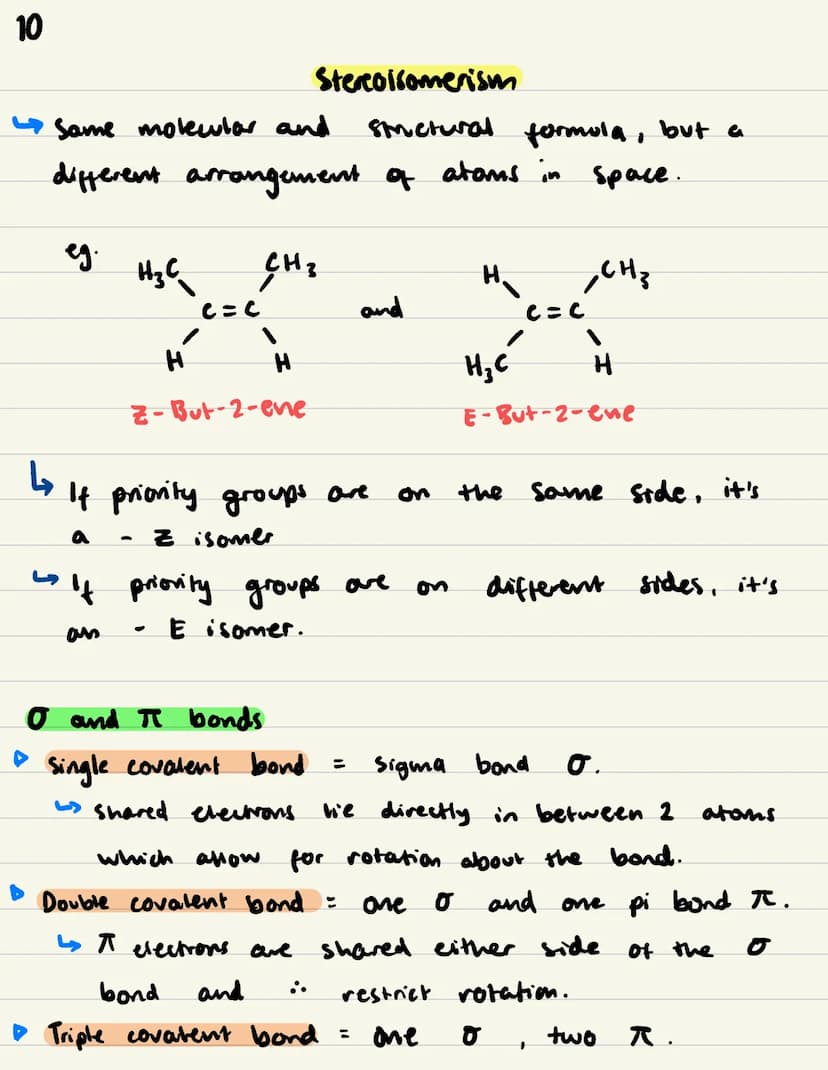 10
Stereoisomerism
↳ Same molecular and structural formula, but a
different arrangement of atoms in space.
eg. H₃C CH₃ H CH₃
C=C and C=C
H H H₃C H
Z-But-2-ene E-But-2-ene
↳ If priority groups are on the same side, it's
a - Z isomer
↳ If priority groups are on different sides, it's
an - E isomer.
σ and π bonds
▷ Single covalent bond = sigma bond σ.
↳ shared electrons lie directly in between 2 atoms
which allow for rotation about the bond.
▷ Double covalent bond = one σ and one pi bond π.
↳ π electrons are shared either side of the σ
bond and ∴ restrict rotation.
▷ Triple covalent bond = one σ, two π.